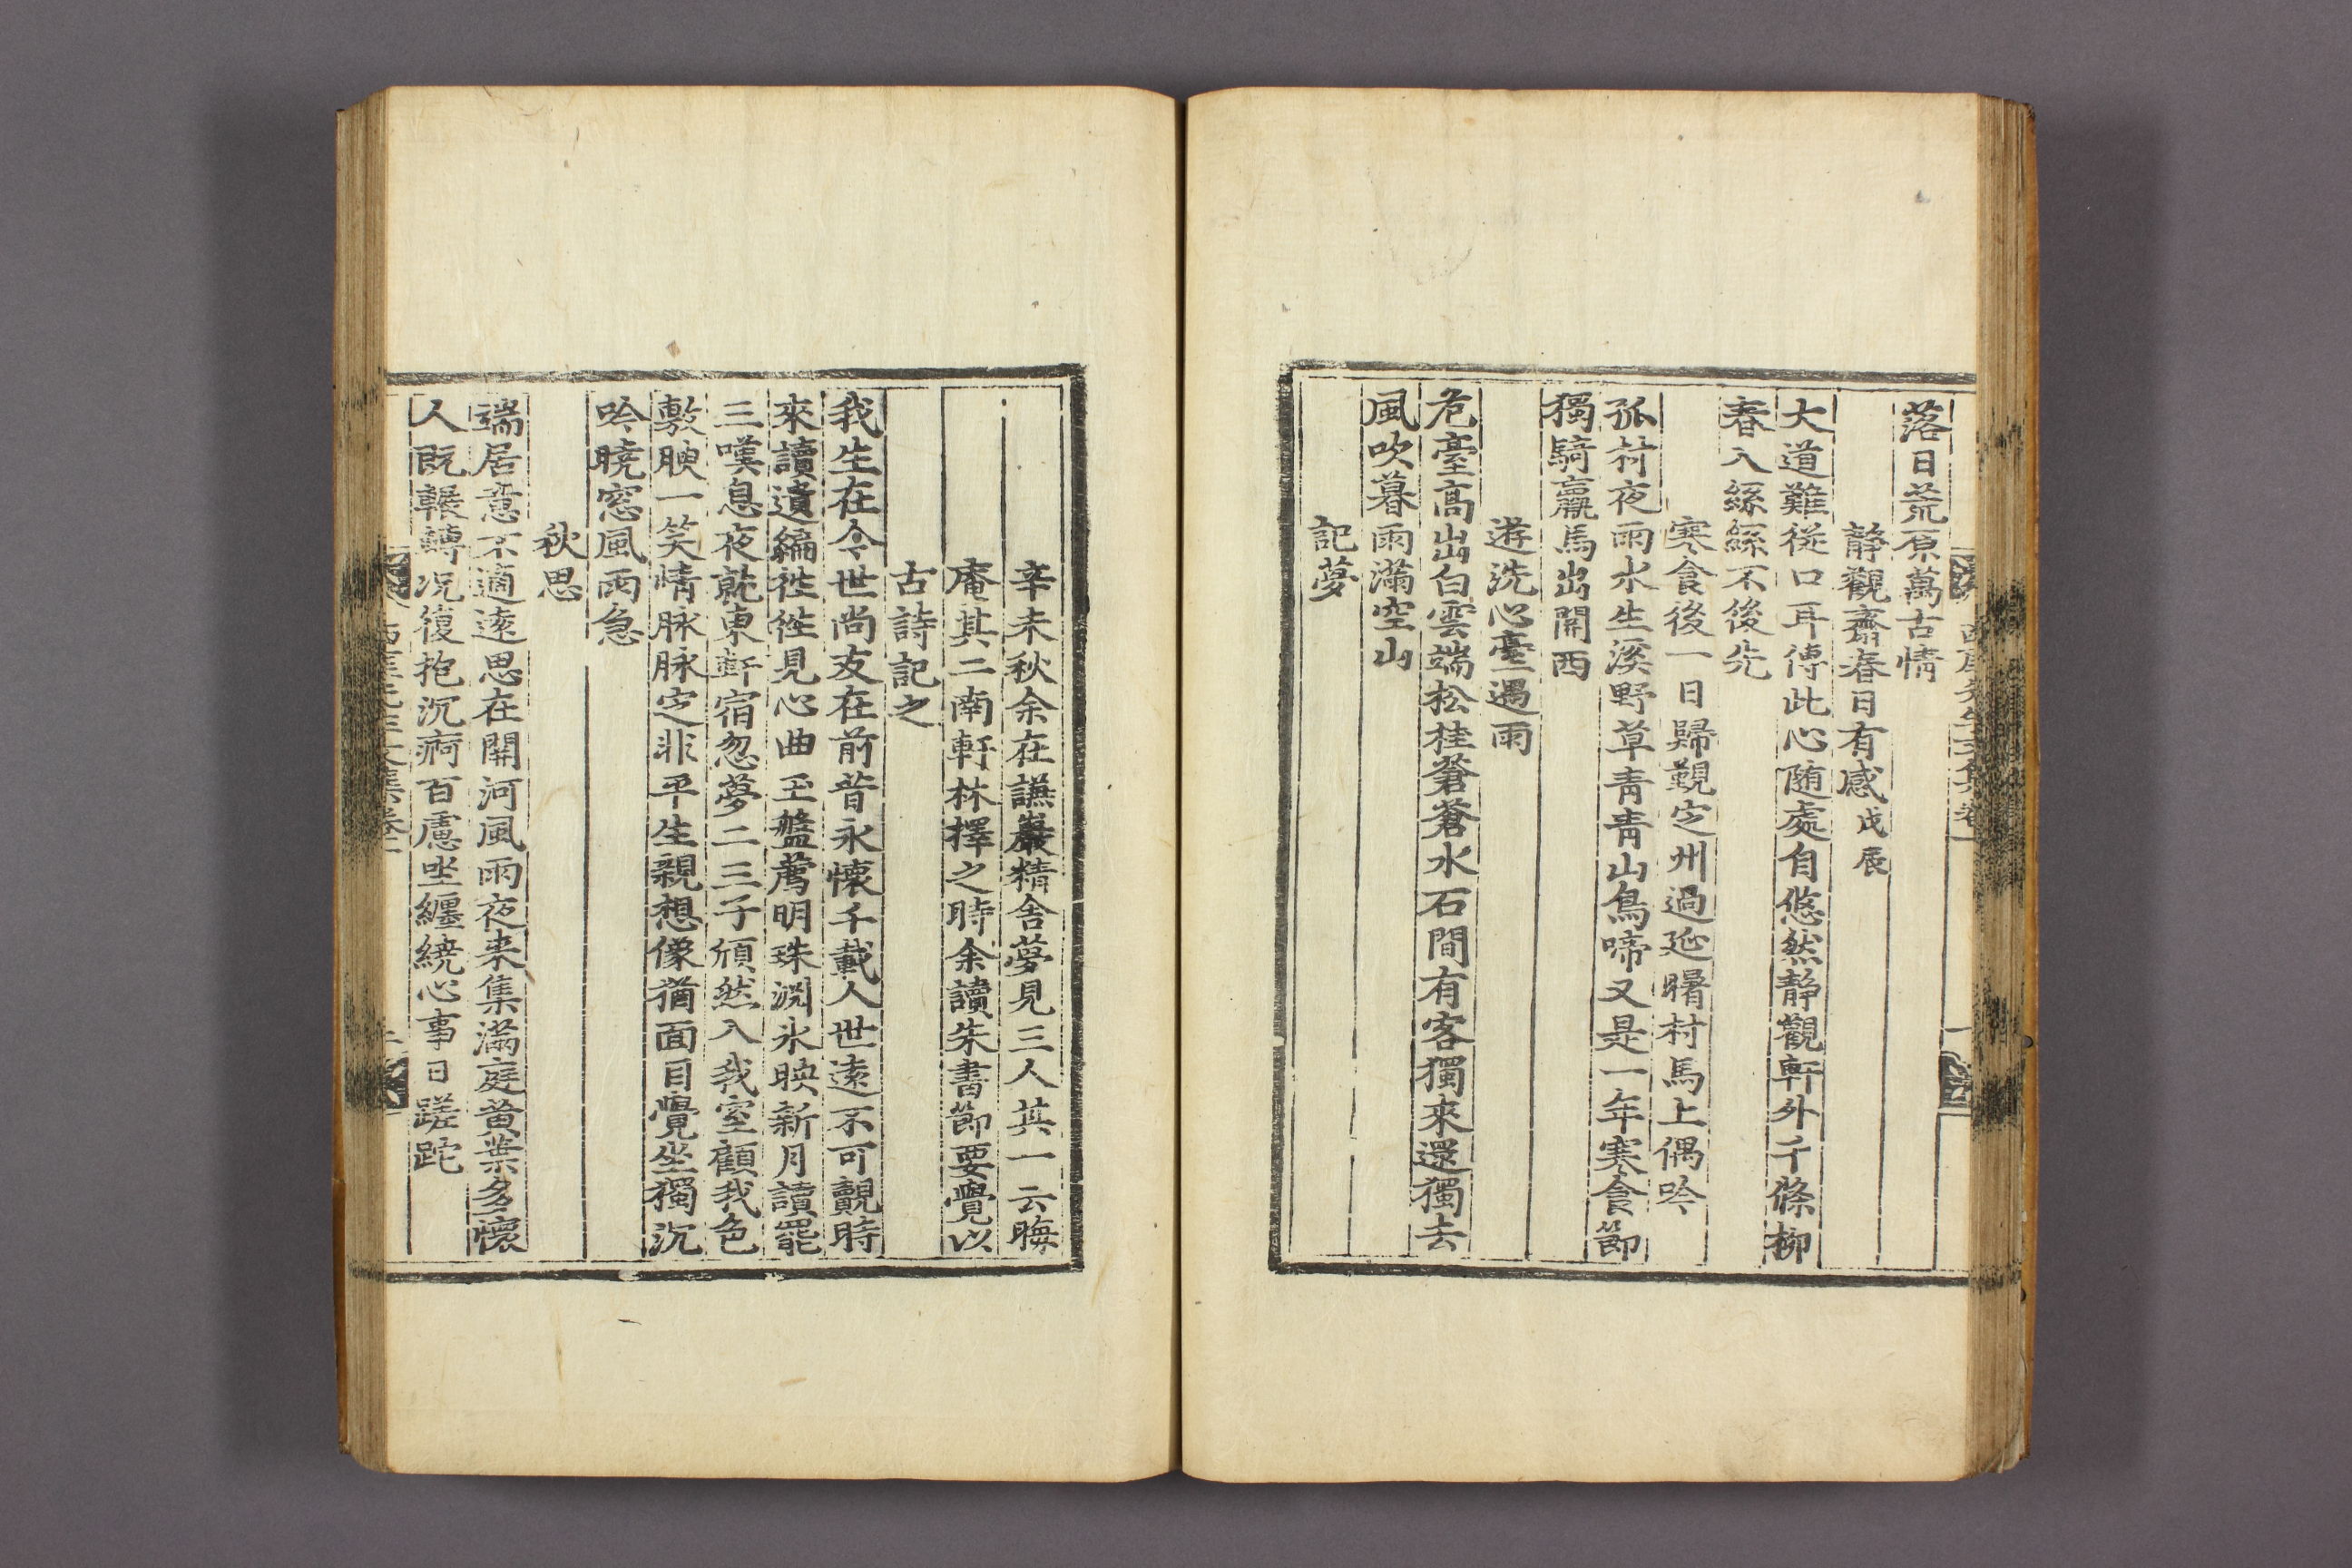 落日荒原萬古情
靜觀齋春日有感戊辰
大道難從口耳傳此心随處自悠然靜觀軒外千條柳
春入絲絲不後先
寒食後一日歸覲定州過延曙村馬上偶吟
孤村夜雨水生溪野草靑靑山鳥啼又是一年寒食節
獨騎羸馬出關西
遊洗心臺遇雨
危臺高出白雲端松桂蒼蒼水石間有客獨來還獨去
風吹暮雨滿空山
記夢
辛未秋余在謙巖精舍夢見三人其一云晦
庵其二南軒林擇之時余讀朱書節要覺以
古詩記之
我生在今世尚友在前昔永懷千載人世遠不可覿時
來讀遺編徃徃見心曲玉盤薦明珠淵氷映新月讀罷
三嘆息夜就東軒宿忽夢二三子頎然入我室顧我色
敷腴一笑情脉脉定非平生親想像猶面目覺坐獨沉
吟曉窓風雨急
秋思
端居意不適遠思在關河風雨夜來集滿庭黃葉多懷
人旣輾轉况復抱沉痾百慮坐纏繞心事日蹉跎
西厓先生文集卷一